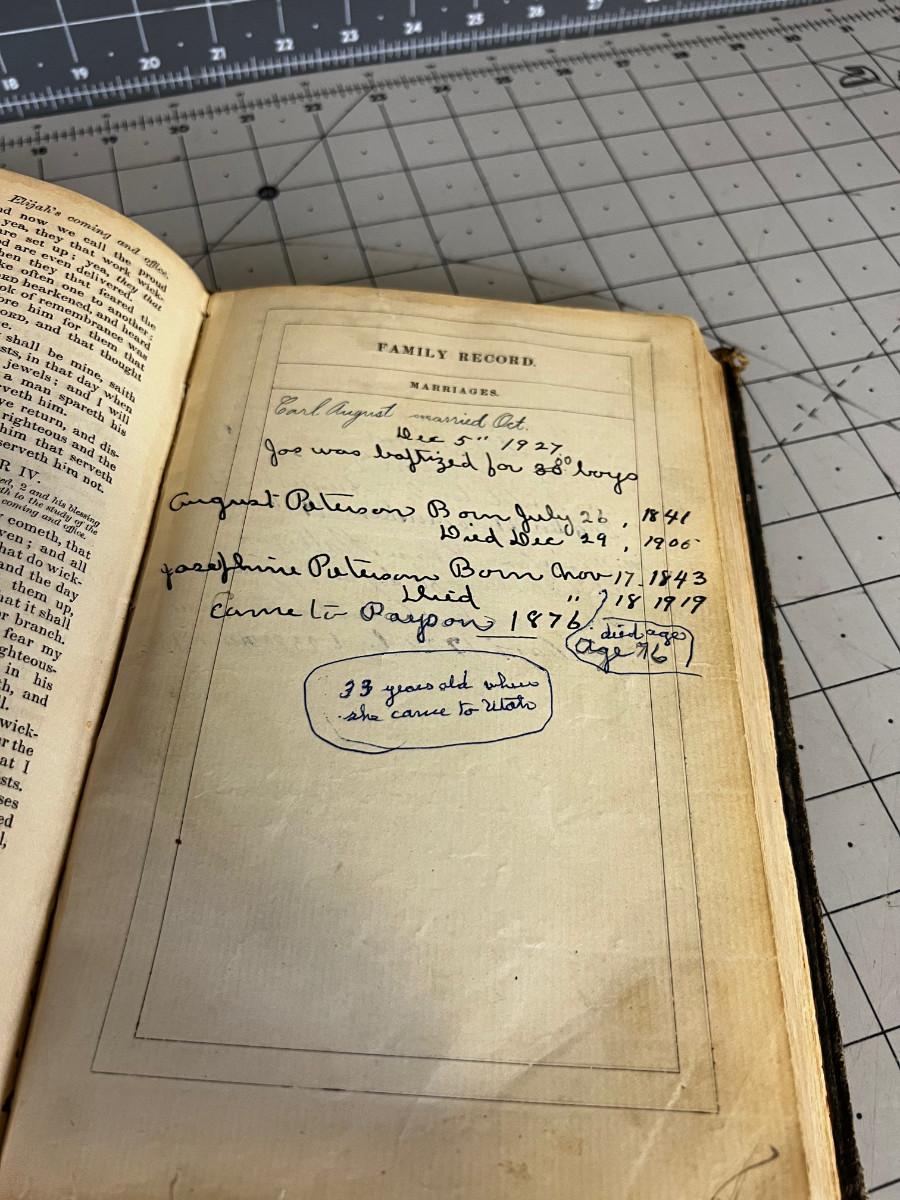 Elijah's coming and office.
nd now we call the proud
yea, they that work wick-
are set up; yea, they that
od are even delivered.
hen they that feared the
ke often one to another:
ORD hearkened, and heard
ook of remembrance was
ore him for them that
ORD, and that thought
e.
shall be mine, saith
sts, in that day when
jewels; and I will
a man spareth his
rveth him.
ye return, and dis-
righteous and the
him that serveth
serveth him not.
R IV.
ed, 2 and his blessing
th to the study of the
coming and office.
cometh, that
ven; and all
hat do wick-
and the day
them up,
hat it shall
or branch.
fear my
ghteous-
in his
h, and
ll.
wick-
r the
at I
sts.
ses
ed
l,
FAMILY RECORD.
MARRIAGES.
Carl August married Oct.
Dec 5" 1927
Jos was baftized for boys
August Peterson Born July 26, 1841
Died Dec 29, 1906
Josephine Peterson Born Nov 17. 1843
Died " 18 1919
Came to Payson 1876
died age
age 76
33 years old when
she came to Utah
18 19 20 21 22 23 24 25 26 27
18 19 20 21 22 23 24 25 26 27 28 29 30 31